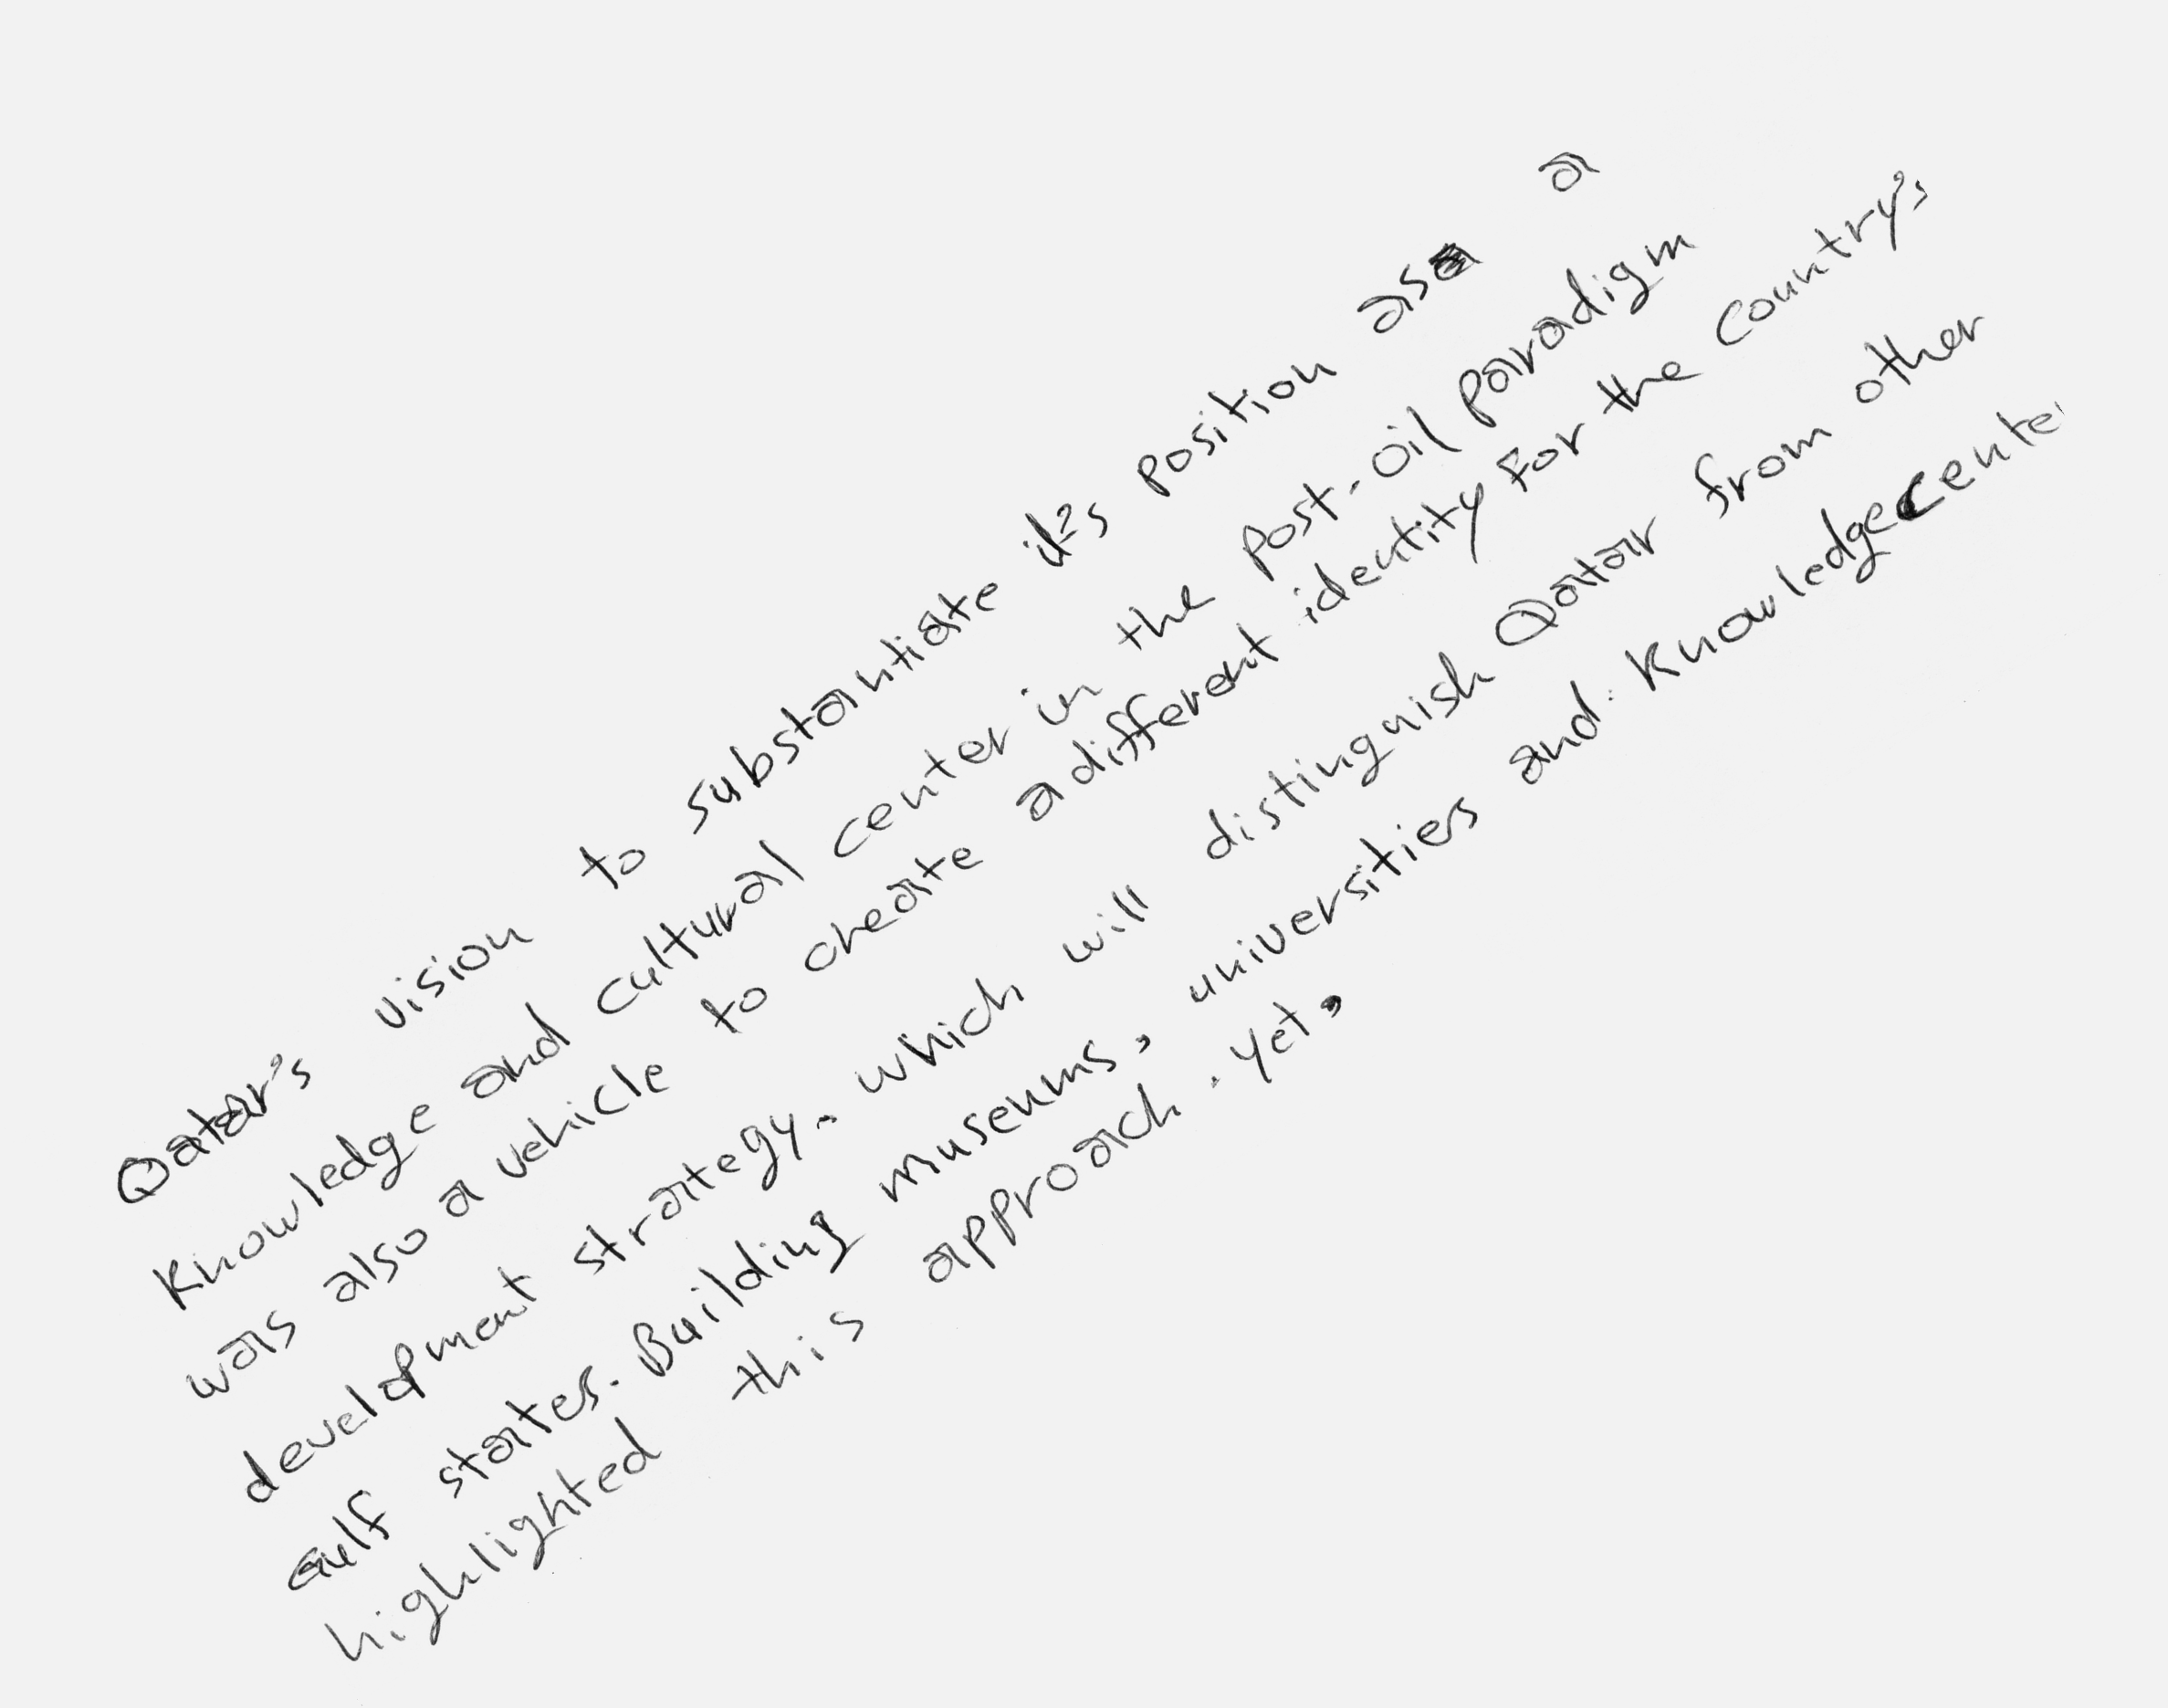 Qatar's vision to substantiate it's position as a
Knowledge and Cultural Center in the Post-Oil paradigm
was also a vehicle to create a different identity For the Country,
development strategy. which will distinguish Qatar from other
Gulf states. Building museums, universities and Knowledge cente
highlighted this approach. yet,